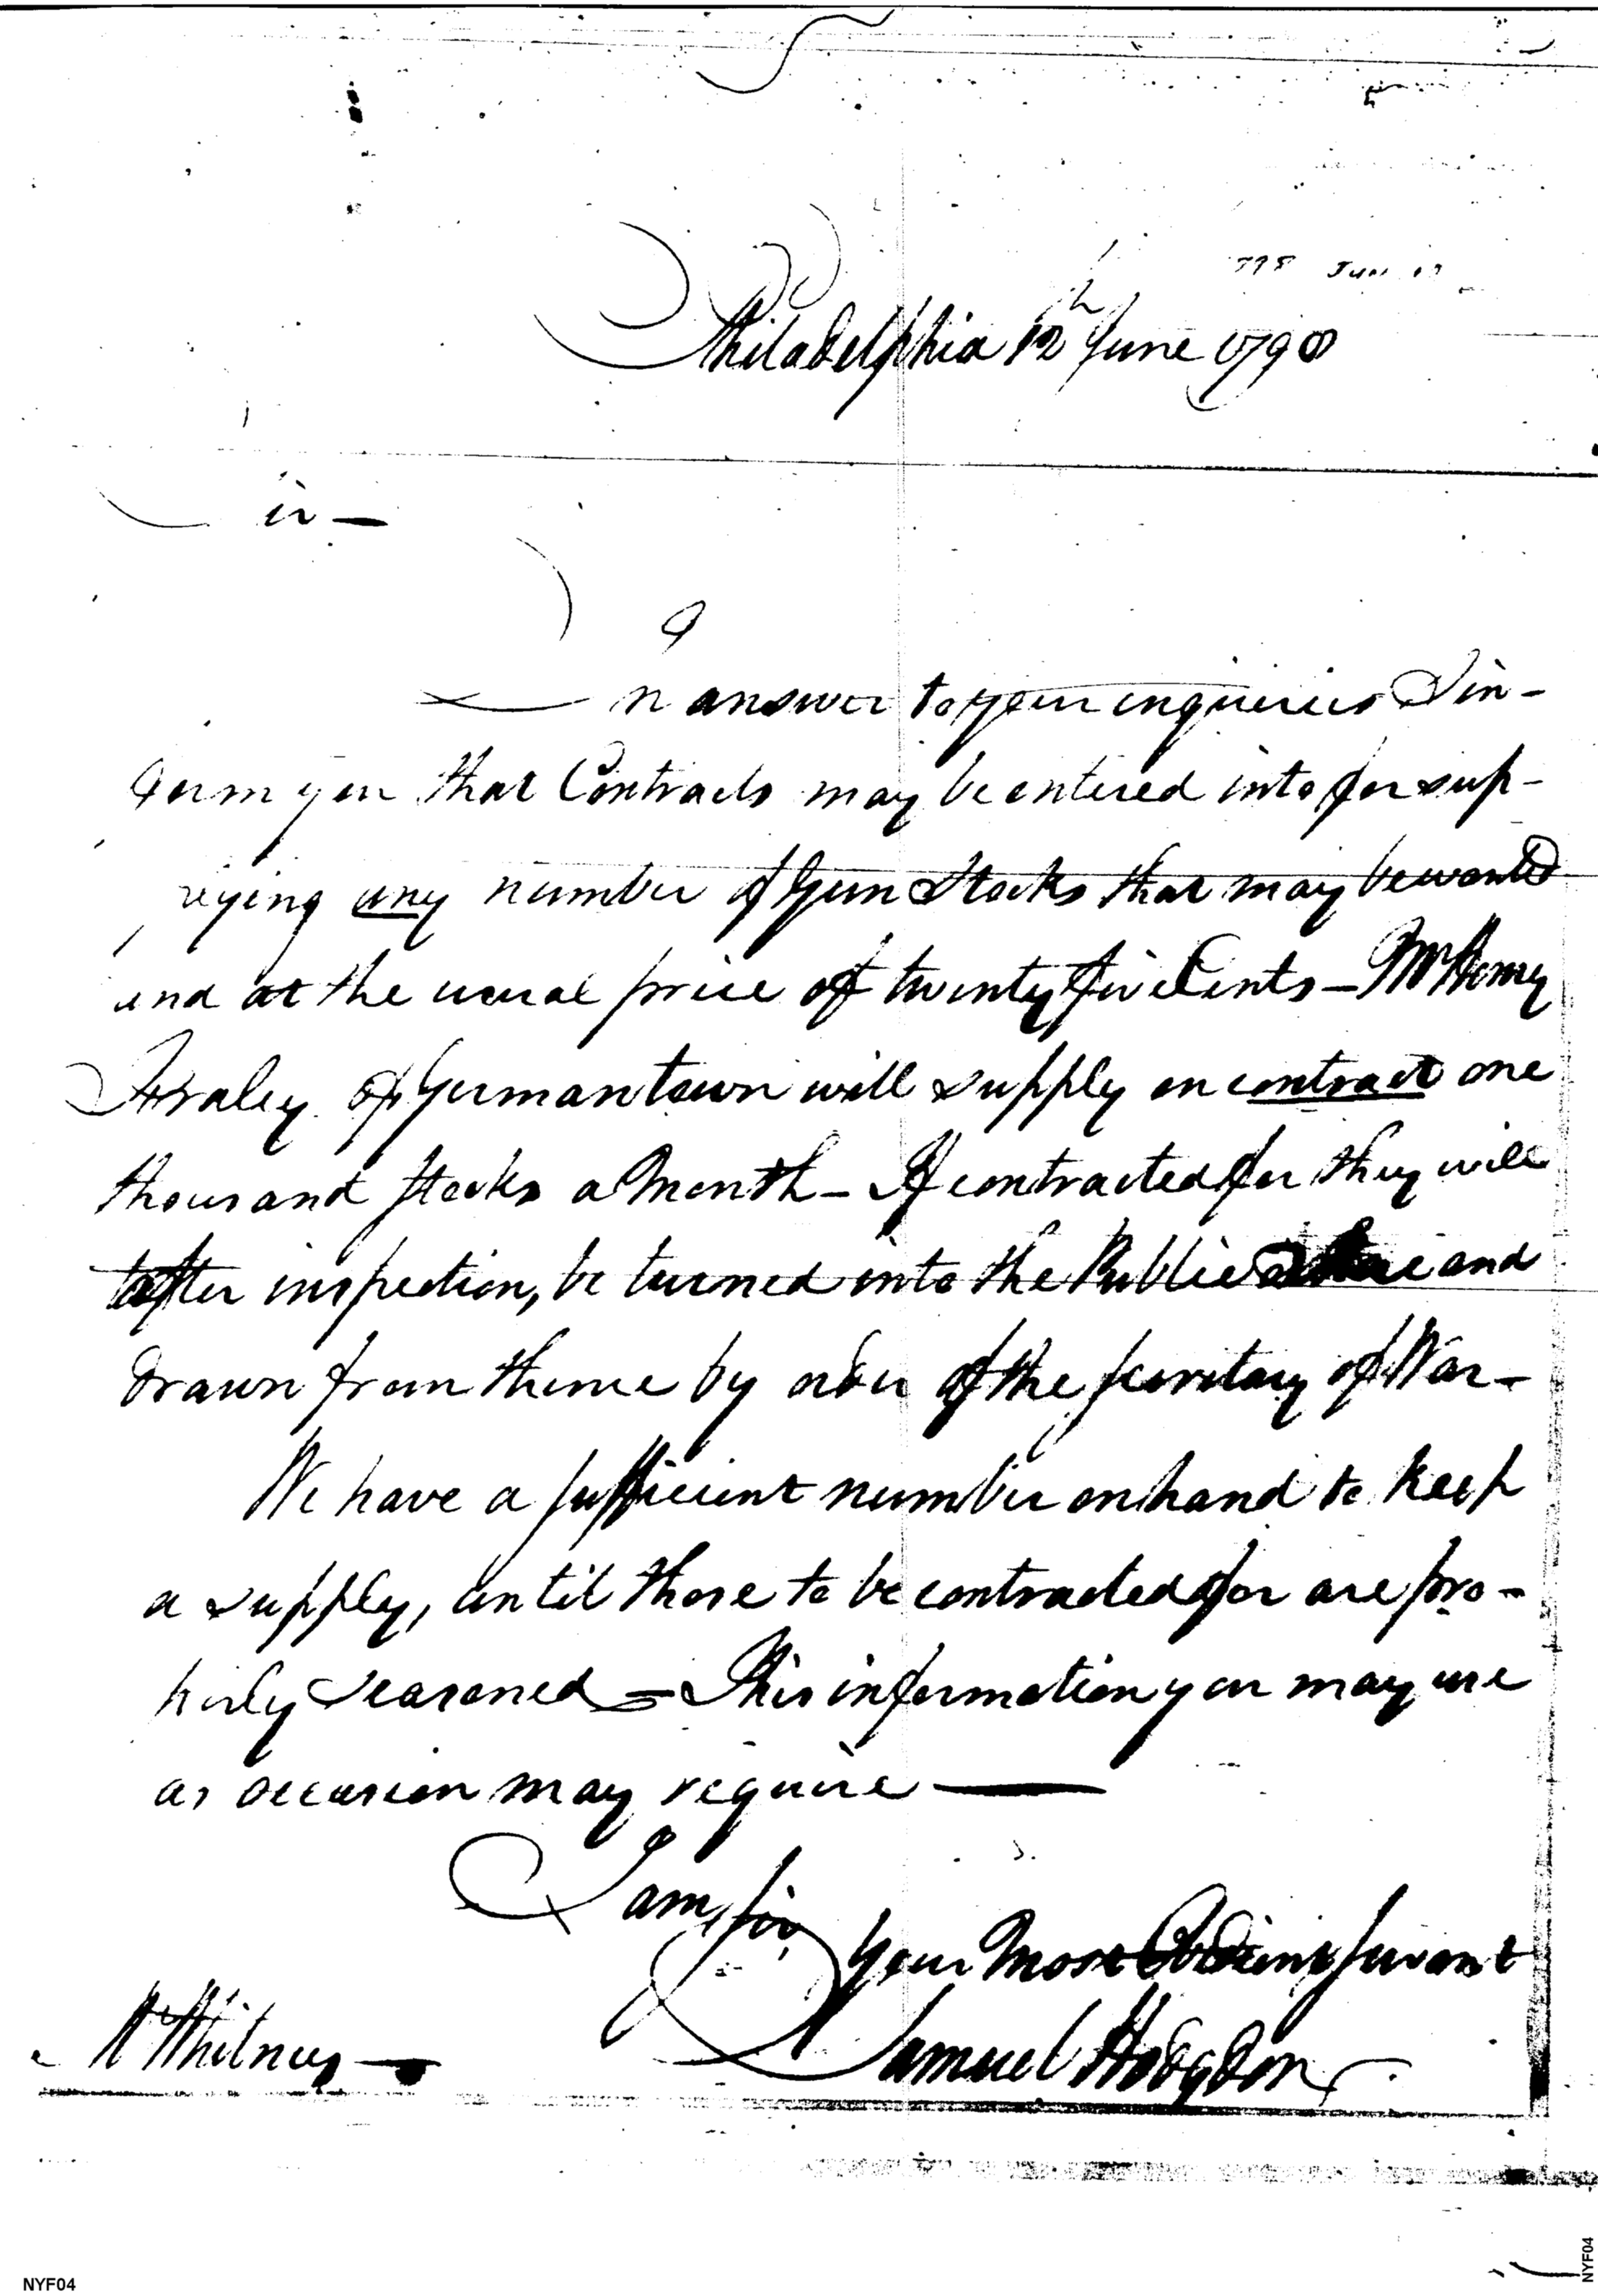 798 Jun 12
Philadelphia 12h June 1798
Sir —
In answer to your inquiries I in-
form you that Contracts may be entered into for sup-
plying any number of Gun Stocks that may be wanted
and at the usual price of twenty five Cents — Mr Henry
Fraley of Germantown will supply on contract one
thousand stocks a Month — If contracted for they will
after inspection, be turned into the Public Store and
drawn from thence by order of the Secretary of War —
We have a sufficient number on hand to keep
a supply, until those to be contracted for are pro-
perly seasoned — This information you may use
as occasion may require —
I am, Sir,
Your Most Obedient Servant
Samuel Hodgdon
Mr Whitney —
NYF04
NYF04